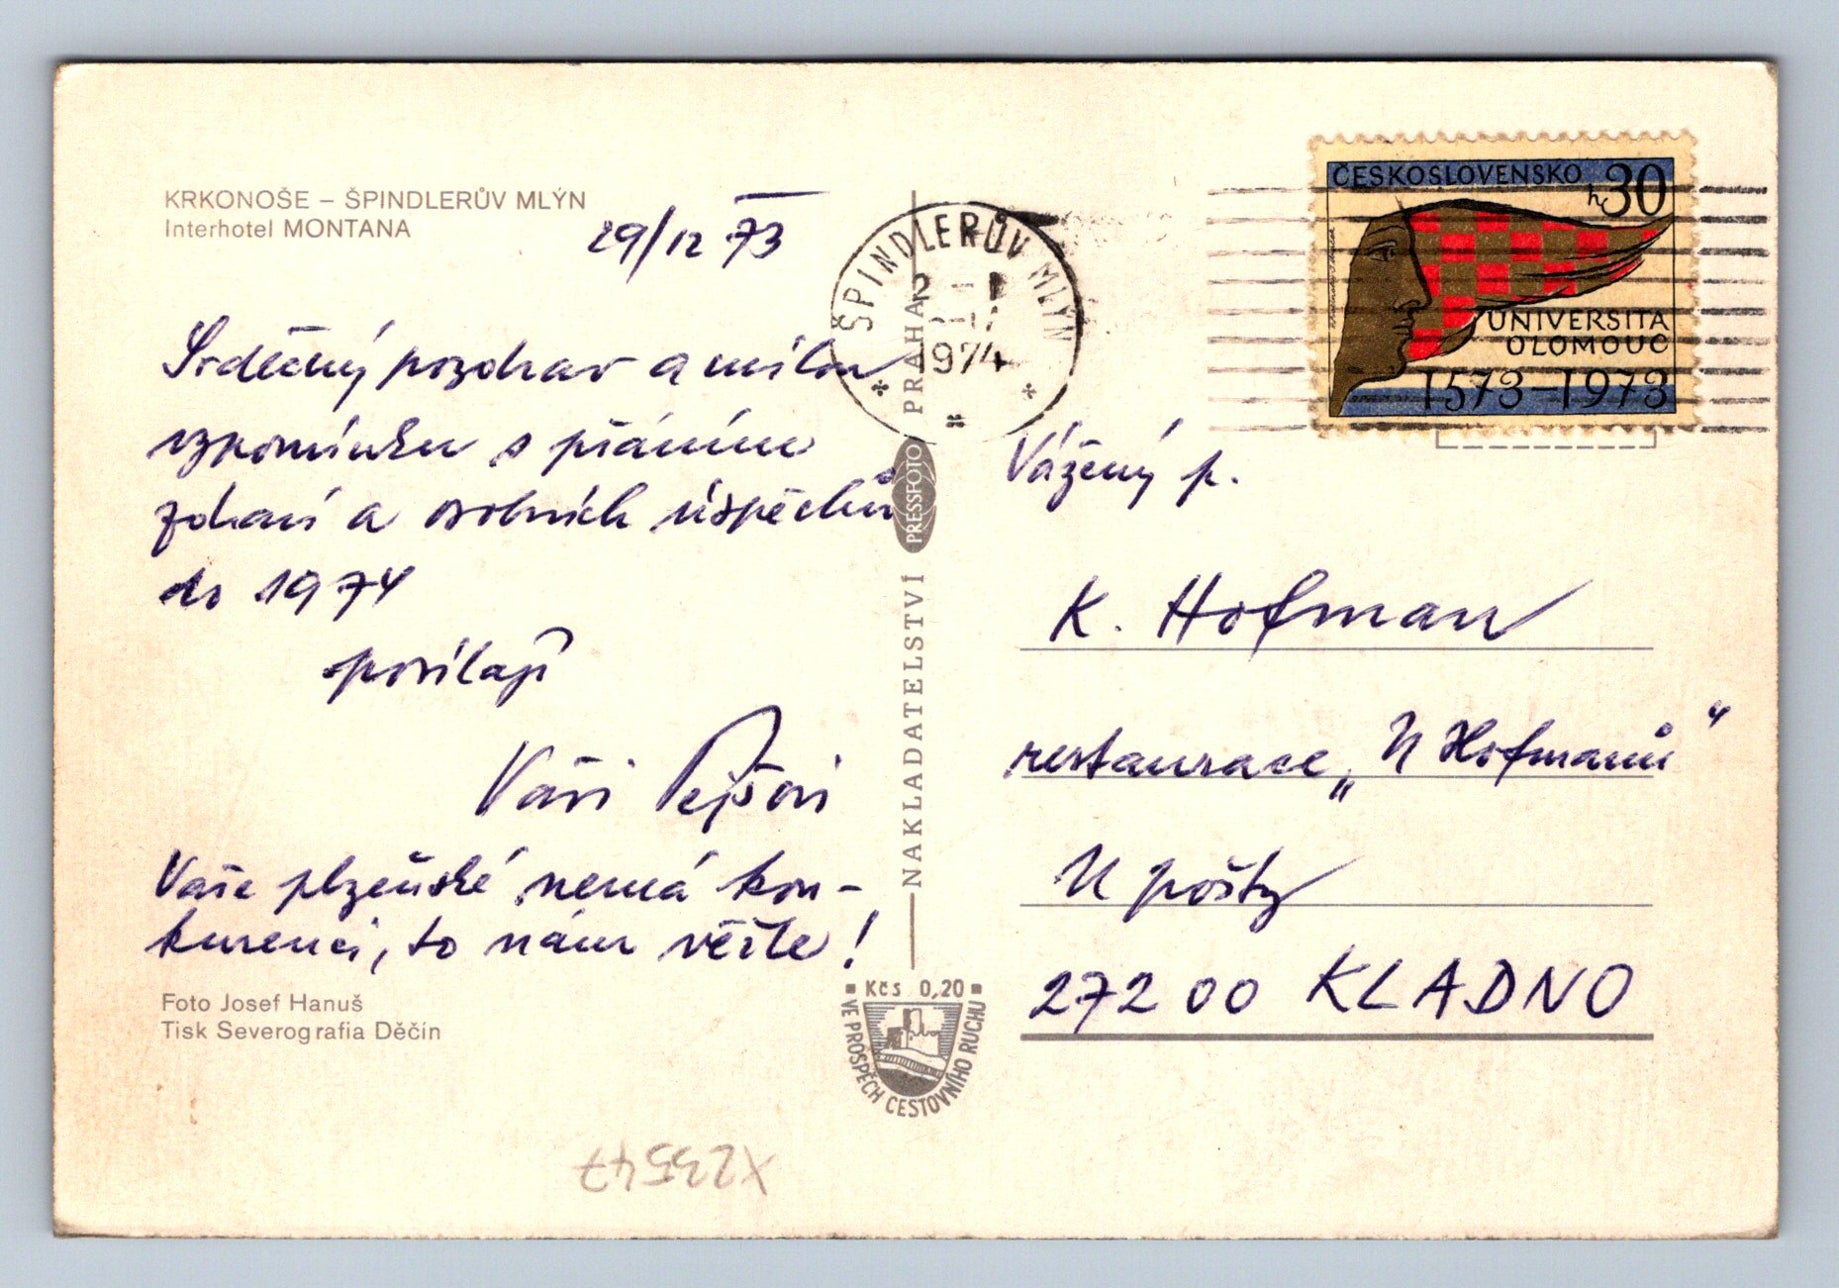 KRKONOŠE – ŠPINDLERŮV MLÝN
Interhotel MONTANA
29/12 73
Srdečný pozdrav a milou
vzpomínku s přáním
zdraví a osobních úspěchů
do 1974
posílají
Vaši Pejšovi
Vaše plzeňské nemá kon-
kurenci, to nám věřte!
Foto Josef Hanuš
Tisk Severografia Děčín
NAKLADATELSTVÍ PRESSFOTO PRAHA
Kčs 0,20
VE PROSPĚCH CESTOVNÍHO RUCHU
ŠPINDLERŮV MLÝN
1974
ČESKOSLOVENSKO
30 h
UNIVERSITA
OLOMOUC
1573–1973
Vážený p.
K. Hofman
restaurace „U Hofmanů“
U pošty
272 00 KLADNO
X23547